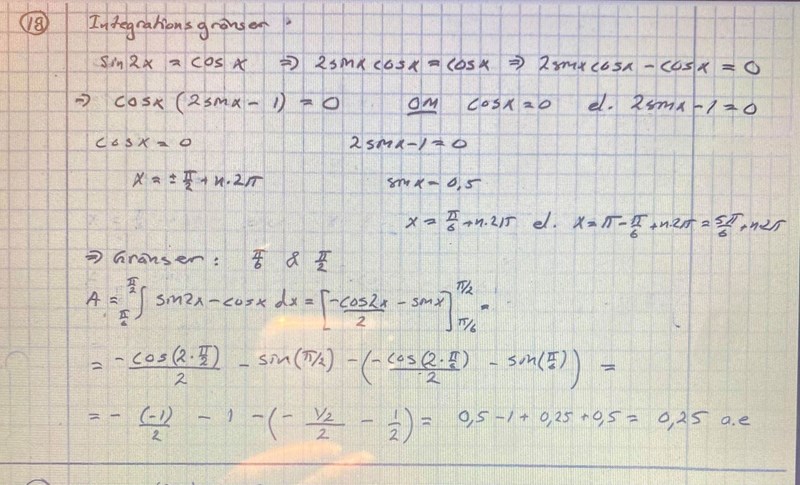 18 Integrationsgränser:
sin2x = cosx ⇒ 2sinx cosx = cosx ⇒ 2sinxcosx - cosx = 0
⇒ cosx (2sinx - 1) = 0 OM cosx = 0 el. 2sinx - 1 = 0
cosx = 0 2sinx - 1 = 0
x = ± π/2 + n·2π sinx = 0,5
x = π/6 + n·2π el. x = π - π/6 + n·2π = 5π/6 + n·2π
⇒ Gränser: π/6 & π/2
A = ∫_{π/6}^{π/2} sin2x - cosx dx = [-cos2x/2 - sinx]_{π/6}^{π/2} =
= -cos(2·π/2)/2 - sin(π/2) - (-cos(2·π/6)/2 - sin(π/6)) =
= - (-1)/2 - 1 - (- 1/2/2 - 1/2) = 0,5 - 1 + 0,25 + 0,5 = 0,25 a.e